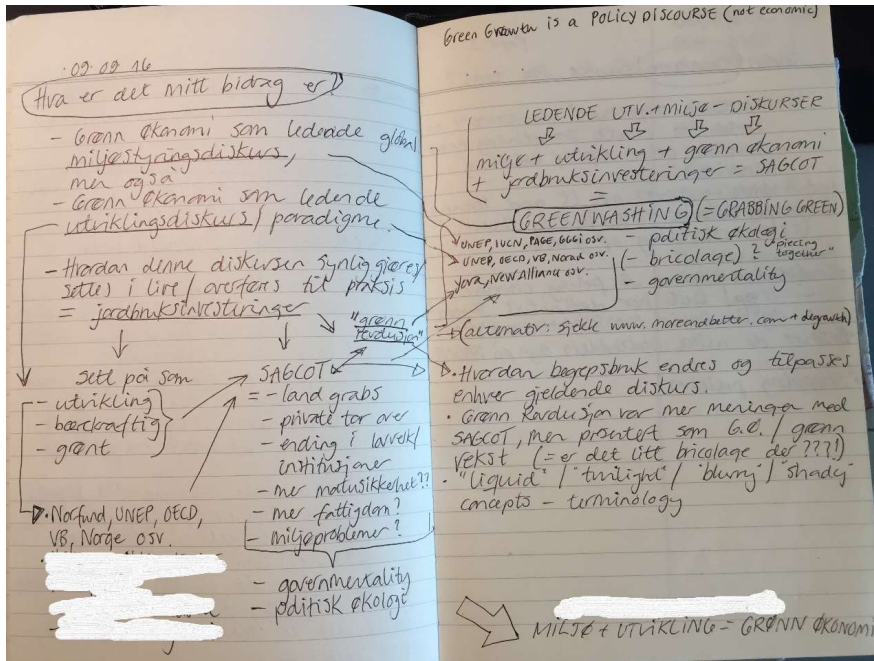 09.09.16
Hva er det mitt bidrag er?
- Grønn økonomi som ledende global
miljøstyringsdiskurs,
men også
- Grønn økonomi som ledende
utviklingsdiskurs/paradigme.
- Hvordan denne diskursen synliggjøres/
settes i live/overføres til praksis
= jordbruksinvesteringer
"grønn
revolusjon"
Sett på som
- utvikling
- bærekraftig
- grønt
SAGCOT
= - land grabs
- private tar over
- endring i lovverk/
institusjoner
- mer matusikkerhet??
- mer fattigdom?
- miljøproblemer?
- governmentality
- politisk økologi
Norfund, UNEP, OECD,
VB, Norge osv.
Green Growth is a POLICY DISCOURSE (not economic)
LEDENDE UTV.+MILJØ-DISKURSER
miljø + utvikling + grønn økonomi
+ jordbruksinvesteringer = SAGCOT
=
GREENWASHING (=GRABBING GREEN)
UNEP, IUCN, PAGE, GGGI osv.
UNEP, OECD, VB, Norad osv.
Yara, NEW Alliance osv.
- politisk økologi
(- bricolage) = "piecing
together"
- governmentality
+ (alternativ: sjekk www.moreandbetter.com + degrowth)
· Hvordan begrepsbruk endres og tilpasses
enhver gjeldende diskurs.
· Grønn Revolusjon var mer meningen med
SAGCOT, men presentert som G.Ø./grønn
vekst (= er det litt bricolage der???!)
· "liquid"/"twilight"/"blurry"/"shady"
concepts - terminology
MILJØ + UTVIKLING = GRØNN ØKONOMI